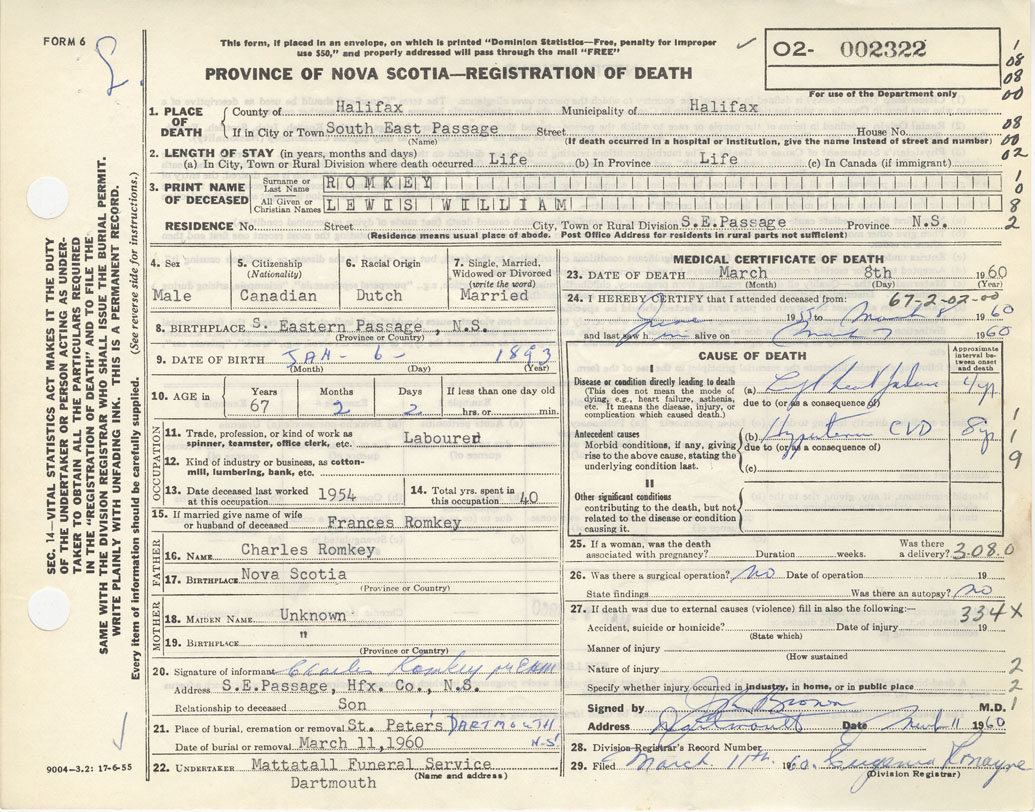 FORM 6
This form, if placed in an envelope, on which is printed "Dominion Statistics—Free, penalty for improper
use $50," and properly addressed will pass through the mail "FREE"
O2- 002322
For use of the Department only
PROVINCE OF NOVA SCOTIA—REGISTRATION OF DEATH
1. PLACE OF DEATH County of Halifax Municipality of Halifax
If in City or Town South East Passage Street House No.
(Name) (If death occurred in a hospital or institution, give the name instead of street and number)
2. LENGTH OF STAY (in years, months and days)
(a) In City, Town or Rural Division where death occurred Life (b) In Province Life (c) In Canada (if immigrant)
3. PRINT NAME OF DECEASED Surname or Last Name ROMKEY
All Given or Christian Names LEWIS WILLIAM
RESIDENCE No. Street City, Town or Rural Division S.E.Passage Province N.S.
(Residence means usual place of abode. Post Office Address for residents in rural parts not sufficient)
4. Sex Male
5. Citizenship (Nationality) Canadian
6. Racial Origin Dutch
7. Single, Married, Widowed or Divorced (write the word) Married
8. BIRTHPLACE S. Eastern Passage , N.S.
(Province or Country)
9. DATE OF BIRTH JAN - 6 - 1893
(Month) (Day) (Year)
10. AGE in Years 67 Months 2 Days 2 If less than one day old hrs. or min.
OCCUPATION
11. Trade, profession, or kind of work as
spinner, teamster, office clerk, etc. Labourer
12. Kind of industry or business, as cotton-
mill, lumbering, bank, etc.
13. Date deceased last worked at this occupation 1954
14. Total yrs. spent in this occupation 40
15. If married give name of wife
or husband of deceased Frances Romkey
FATHER
16. NAME Charles Romkey
17. BIRTHPLACE Nova Scotia
(Province or Country)
MOTHER
18. MAIDEN NAME Unknown
19. BIRTHPLACE "
(Province or Country)
20. Signature of informant Charles Romkey
Address S.E.Passage, Hfx. Co., N.S.
Relationship to deceased Son
21. Place of burial, cremation or removal St. Peters DARTMOUTH
Date of burial or removal March 11,1960 N-S
22. UNDERTAKER Mattatall Funeral Service
(Name and address)
Dartmouth
MEDICAL CERTIFICATE OF DEATH
23. DATE OF DEATH March 8th 1960
(Month) (Day) (Year)
67-2-02-00
24. I HEREBY CERTIFY that I attended deceased from:
June 19 to March 8 1960
and last saw h alive on March 7 1960
CAUSE OF DEATH
Approximate interval between onset and death
I
Disease or condition directly leading to death
(This does not mean the mode of
dying, e.g., heart failure, asthenia,
etc. It means the disease, injury, or
complication which caused death.)
(a) heart failure 4 yr
due to (or as a consequence of)
Antecedent causes
Morbid conditions, if any, giving
rise to the above cause, stating the
underlying condition last.
(b) CVD 8 yr
due to (or as a consequence of)
(c)
II
Other significant conditions
contributing to the death, but not
related to the disease or condition
causing it.
25. If a woman, was the death
associated with pregnancy? Duration weeks. Was there a delivery? 3-08.0
26. Was there a surgical operation? no Date of operation 19
State findings Was there an autopsy? no
27. If death was due to external causes (violence) fill in also the following:— 334 X
Accident, suicide or homicide? Date of injury 19
(State which)
Manner of injury
(How sustained
Nature of injury
Specify whether injury occurred in industry, in home, or in public place
Signed by Brown M.D.
Address Dartmouth Date 11 1960
28. Division Registrar's Record Number
29. Filed March 11th 1960. Eugenia Ronayne
(Division Registrar)
1
08
08
00
08
00
02
1
0
8
2
1
1
9
2
2
1
SEC. 14—VITAL STATISTICS ACT MAKES IT THE DUTY
OF THE UNDERTAKER OR PERSON ACTING AS UNDER-
TAKER TO OBTAIN ALL THE PARTICULARS REQUIRED
IN THE "REGISTRATION OF DEATH" AND TO FILE THE
SAME WITH THE DIVISION REGISTRAR WHO SHALL ISSUE THE BURIAL PERMIT.
WRITE PLAINLY WITH UNFADING INK. THIS IS A PERMANENT RECORD.
Every item of information should be carefully supplied. (See reverse side for instructions.)
9004-3.2: 17-6-55